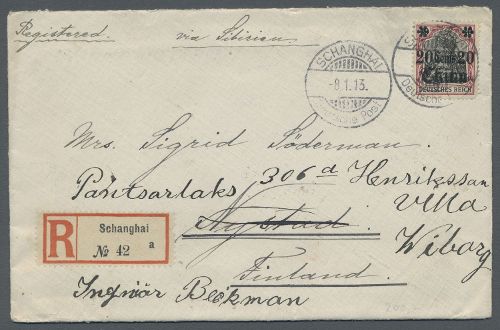 Registered. via Sibirien.
SCHANGHAI
-8.1.13.
Deutsche Post
20 20
China
DEUTSCHES REICH
Mrs. Sigrid Söderman.
Pantsarlaks 306 d Henrikssan
Nystad. Villa
Wiborg
Finland.
Ingwär Beckman
R Schanghai
a
№ 42